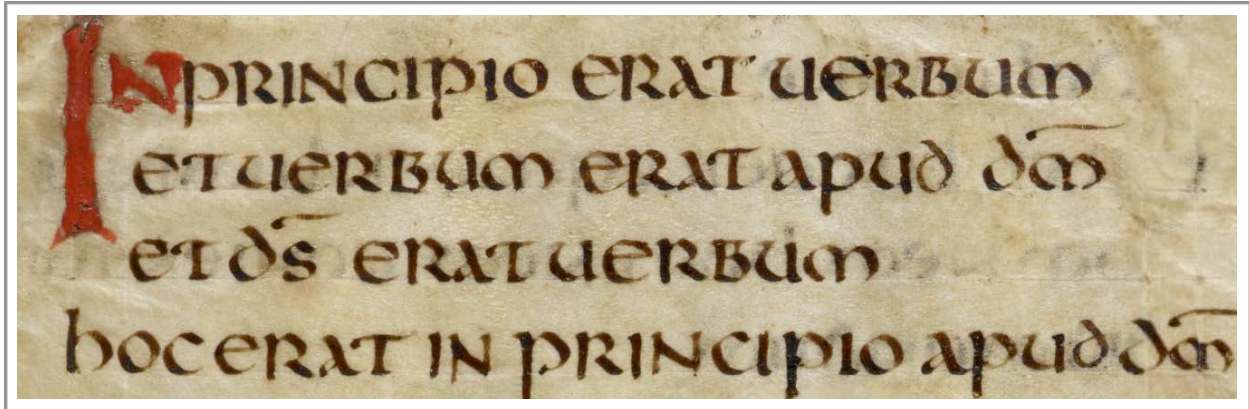 IN PRINCIPIO ERAT UERBUM
ET UERBUM ERAT APUD dm̄
ET ds̄ ERAT UERBUM
hOC ERAT IN PRINCIPIO APUD dm̄